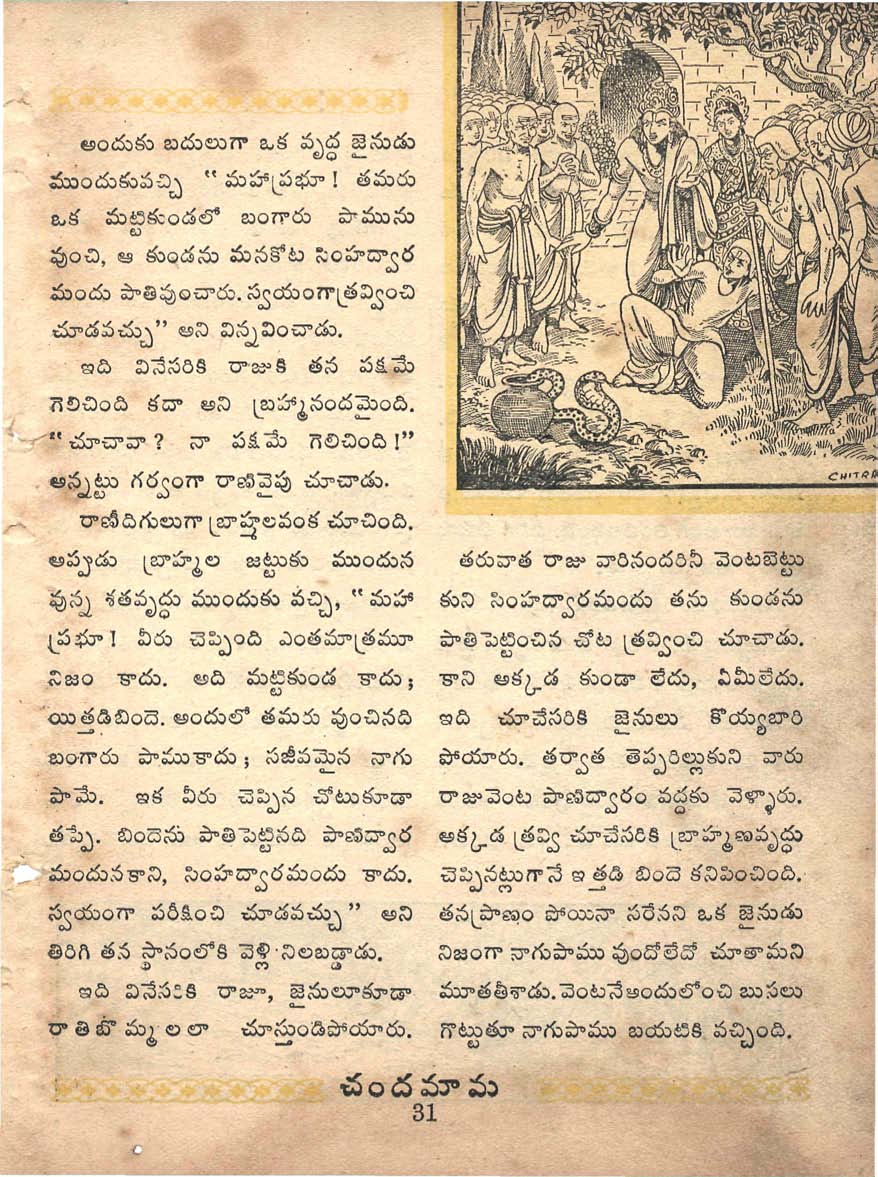 అందుకు బదులుగా ఒక వృద్ధ జైనుడు
ముందుకువచ్చి “ మహాప్రభూ ! తమరు
ఒక మట్టికుండలో బంగారు పామును
వుంచి, ఆ కుండను మనకోట సింహద్వార
మందు పాతివుంచారు. స్వయంగాత్రవ్వించి
చూడవచ్చు” అని విన్నవించాడు.
ఇది వినేసరికి రాజుకి తన పక్షమే
గెలిచింది కదా అని బ్రహ్మానందమైంది.
“ చూచావా ? నా పక్షమే గెలిచింది !”
అన్నట్టు గర్వంగా రాణివైపు చూచాడు.
రాణీదిగులుగా బ్రాహ్మలవంక చూచింది.
అప్పుడు బ్రాహ్మల జట్టుకు ముందున
వున్న శతవృద్ధు ముందుకు వచ్చి, “ మహా
ప్రభూ ! వీరు చెప్పింది ఎంతమాత్రమూ
నిజం కాదు. అది మట్టికుండ కాదు ;
యిత్తడిబిందె. అందులో తమరు వుంచినది
బంగారు పాముకాదు ; సజీవమైన నాగు
పామే. ఇక వీరు చెప్పిన చోటుకూడా
తప్పే. బిందెను పాతిపెట్టినది పాణిద్వార
మందునకాని, సింహద్వారమందు కాదు.
స్వయంగా పరీక్షించి చూడవచ్చు” అని
తిరిగి తన స్థానంలోకి వెళ్లి నిలబడ్డాడు.
ఇది వినేసరికి రాజూ, జైనులూకూడా
రాతిబొమ్మలలా చూస్తుండిపోయారు.
CHITRA
తరువాత రాజు వారినందరినీ వెంటబెట్టు
కుని సింహద్వారమందు తను కుండను
పాతిపెట్టించిన చోట త్రవ్వించి చూచాడు.
కాని అక్కడ కుండా లేదు, ఏమీలేదు.
ఇది చూచేసరికి జైనులు కొయ్యబారి
పోయారు. తర్వాత తెప్పరిల్లుకుని వారు
రాజువెంట పాణిద్వారం వద్దకు వెళ్ళారు.
అక్కడ త్రవ్వి చూచేసరికి బ్రాహ్మణవృద్ధు
చెప్పినట్లుగానే ఇత్తడి బిందె కనిపించింది.
తనప్రాణం పోయినా సరేనని ఒక జైనుడు
నిజంగా నాగుపాము వుందోలేదో చూతామని
మూతతీశాడు. వెంటనేఅందులోంచి బుసలు
గొట్టుతూ నాగుపాము బయటికి వచ్చింది.
చందమామ
31